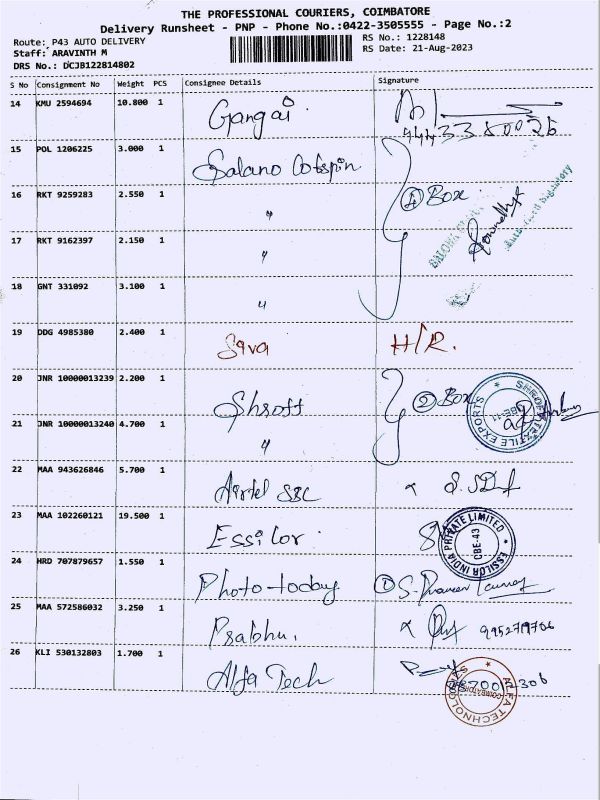 THE PROFESSIONAL COURIERS, COIMBATORE
Delivery Runsheet - PNP - Phone No.:0422-3505555 - Page No.:2
Route: P43 AUTO DELIVERY
RS No.: 1228148
Staff: ARAVINTH M
RS Date: 21-Aug-2023
DRS No.: DCJB122814802
S No Consignment No Weight PCS Consignee Details Signature
14 KMU 2594694 10.800 1 Gangai
15 POL 1206225 3.000 1 Salano Cotspin
16 RKT 9259283 2.550 1 〃 ④ Box
17 RKT 9162397 2.150 1 〃
18 GNT 331092 3.100 1 〃
19 DDG 4985380 2.400 1 Siva H/R.
20 JNR 10000013239 2.200 1 Shroff ② Box
SHROFF TEXTILE EXPORTS
21 JNR 10000013240 4.700 1 〃
22 MAA 943626846 5.700 1 Airtel SSC
23 MAA 102260121 19.500 1 Essilor
ESSILOR INDIA PRIVATE LIMITED CBE-43
24 HRD 707879657 1.550 1 Photo-today ①
25 MAA 572586032 3.250 1 Prabhu. 9952719706
26 KLI 530132803 1.700 1 Alfa Tech
ALFA TECHNOLOGIES COIMBATORE